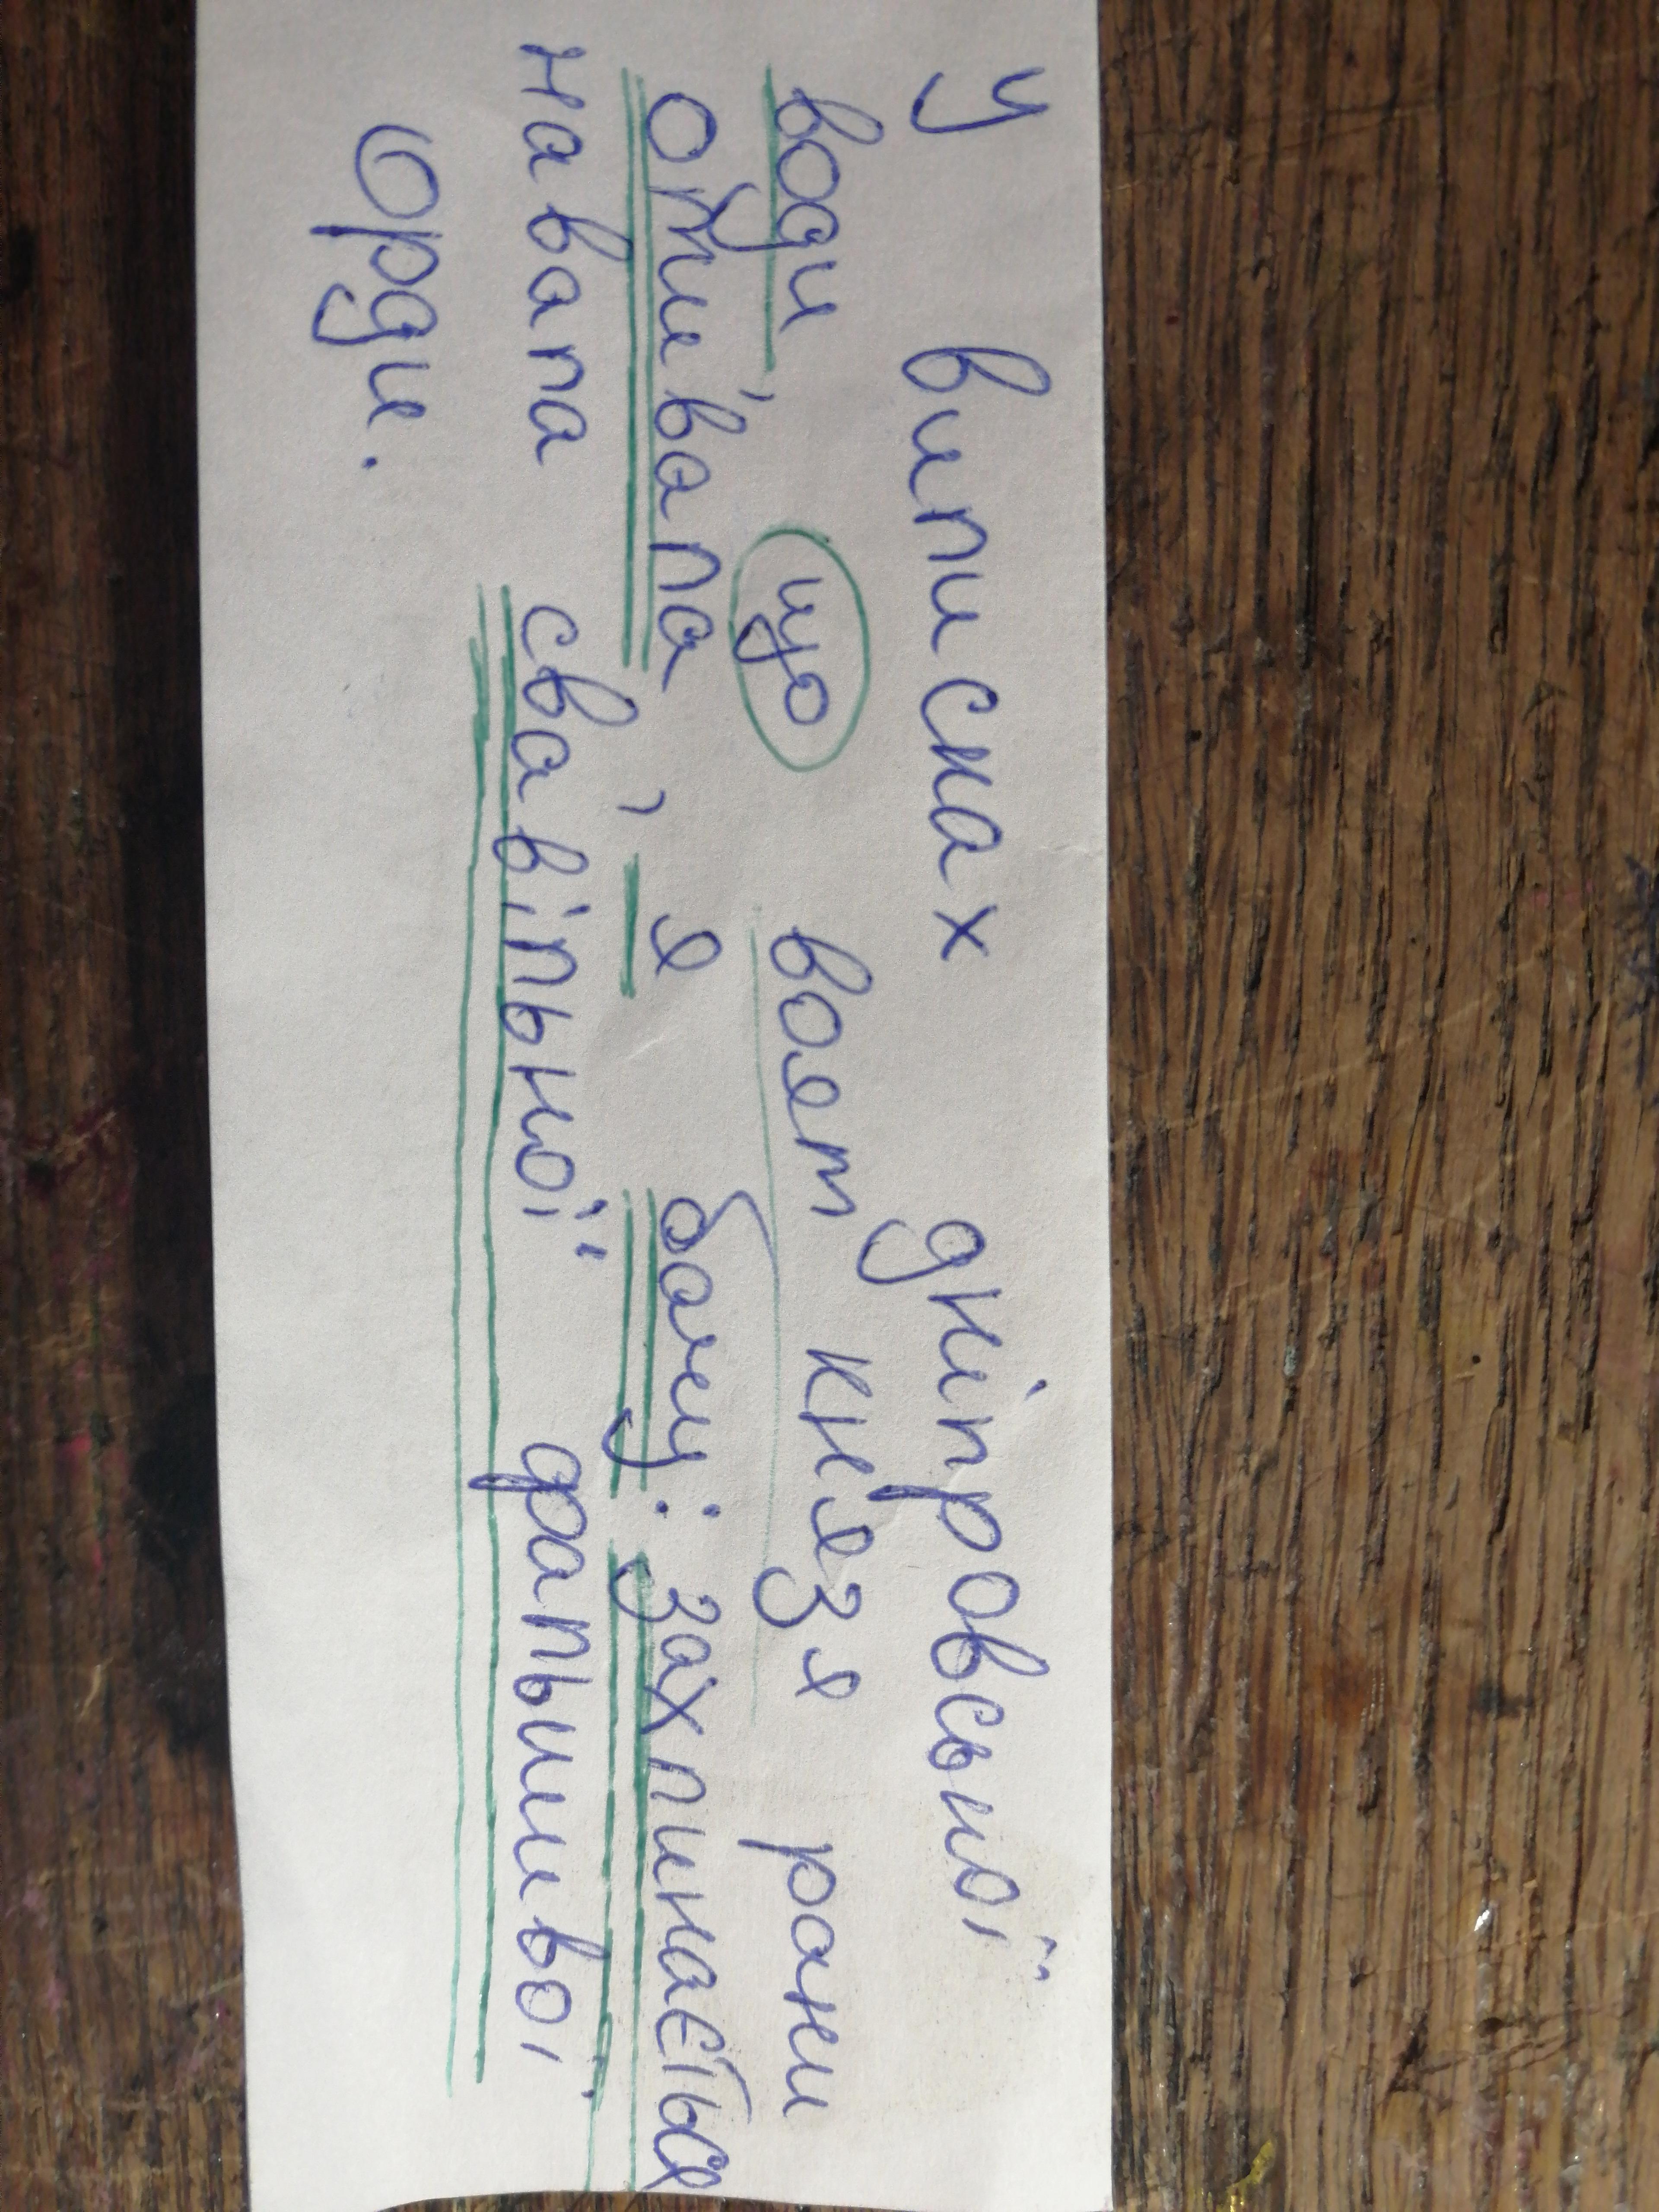 У виписках дніпровської
води, що воят князя рани
омивала, я бачу: захлинається
навала свавільної фальшивої
Орди.